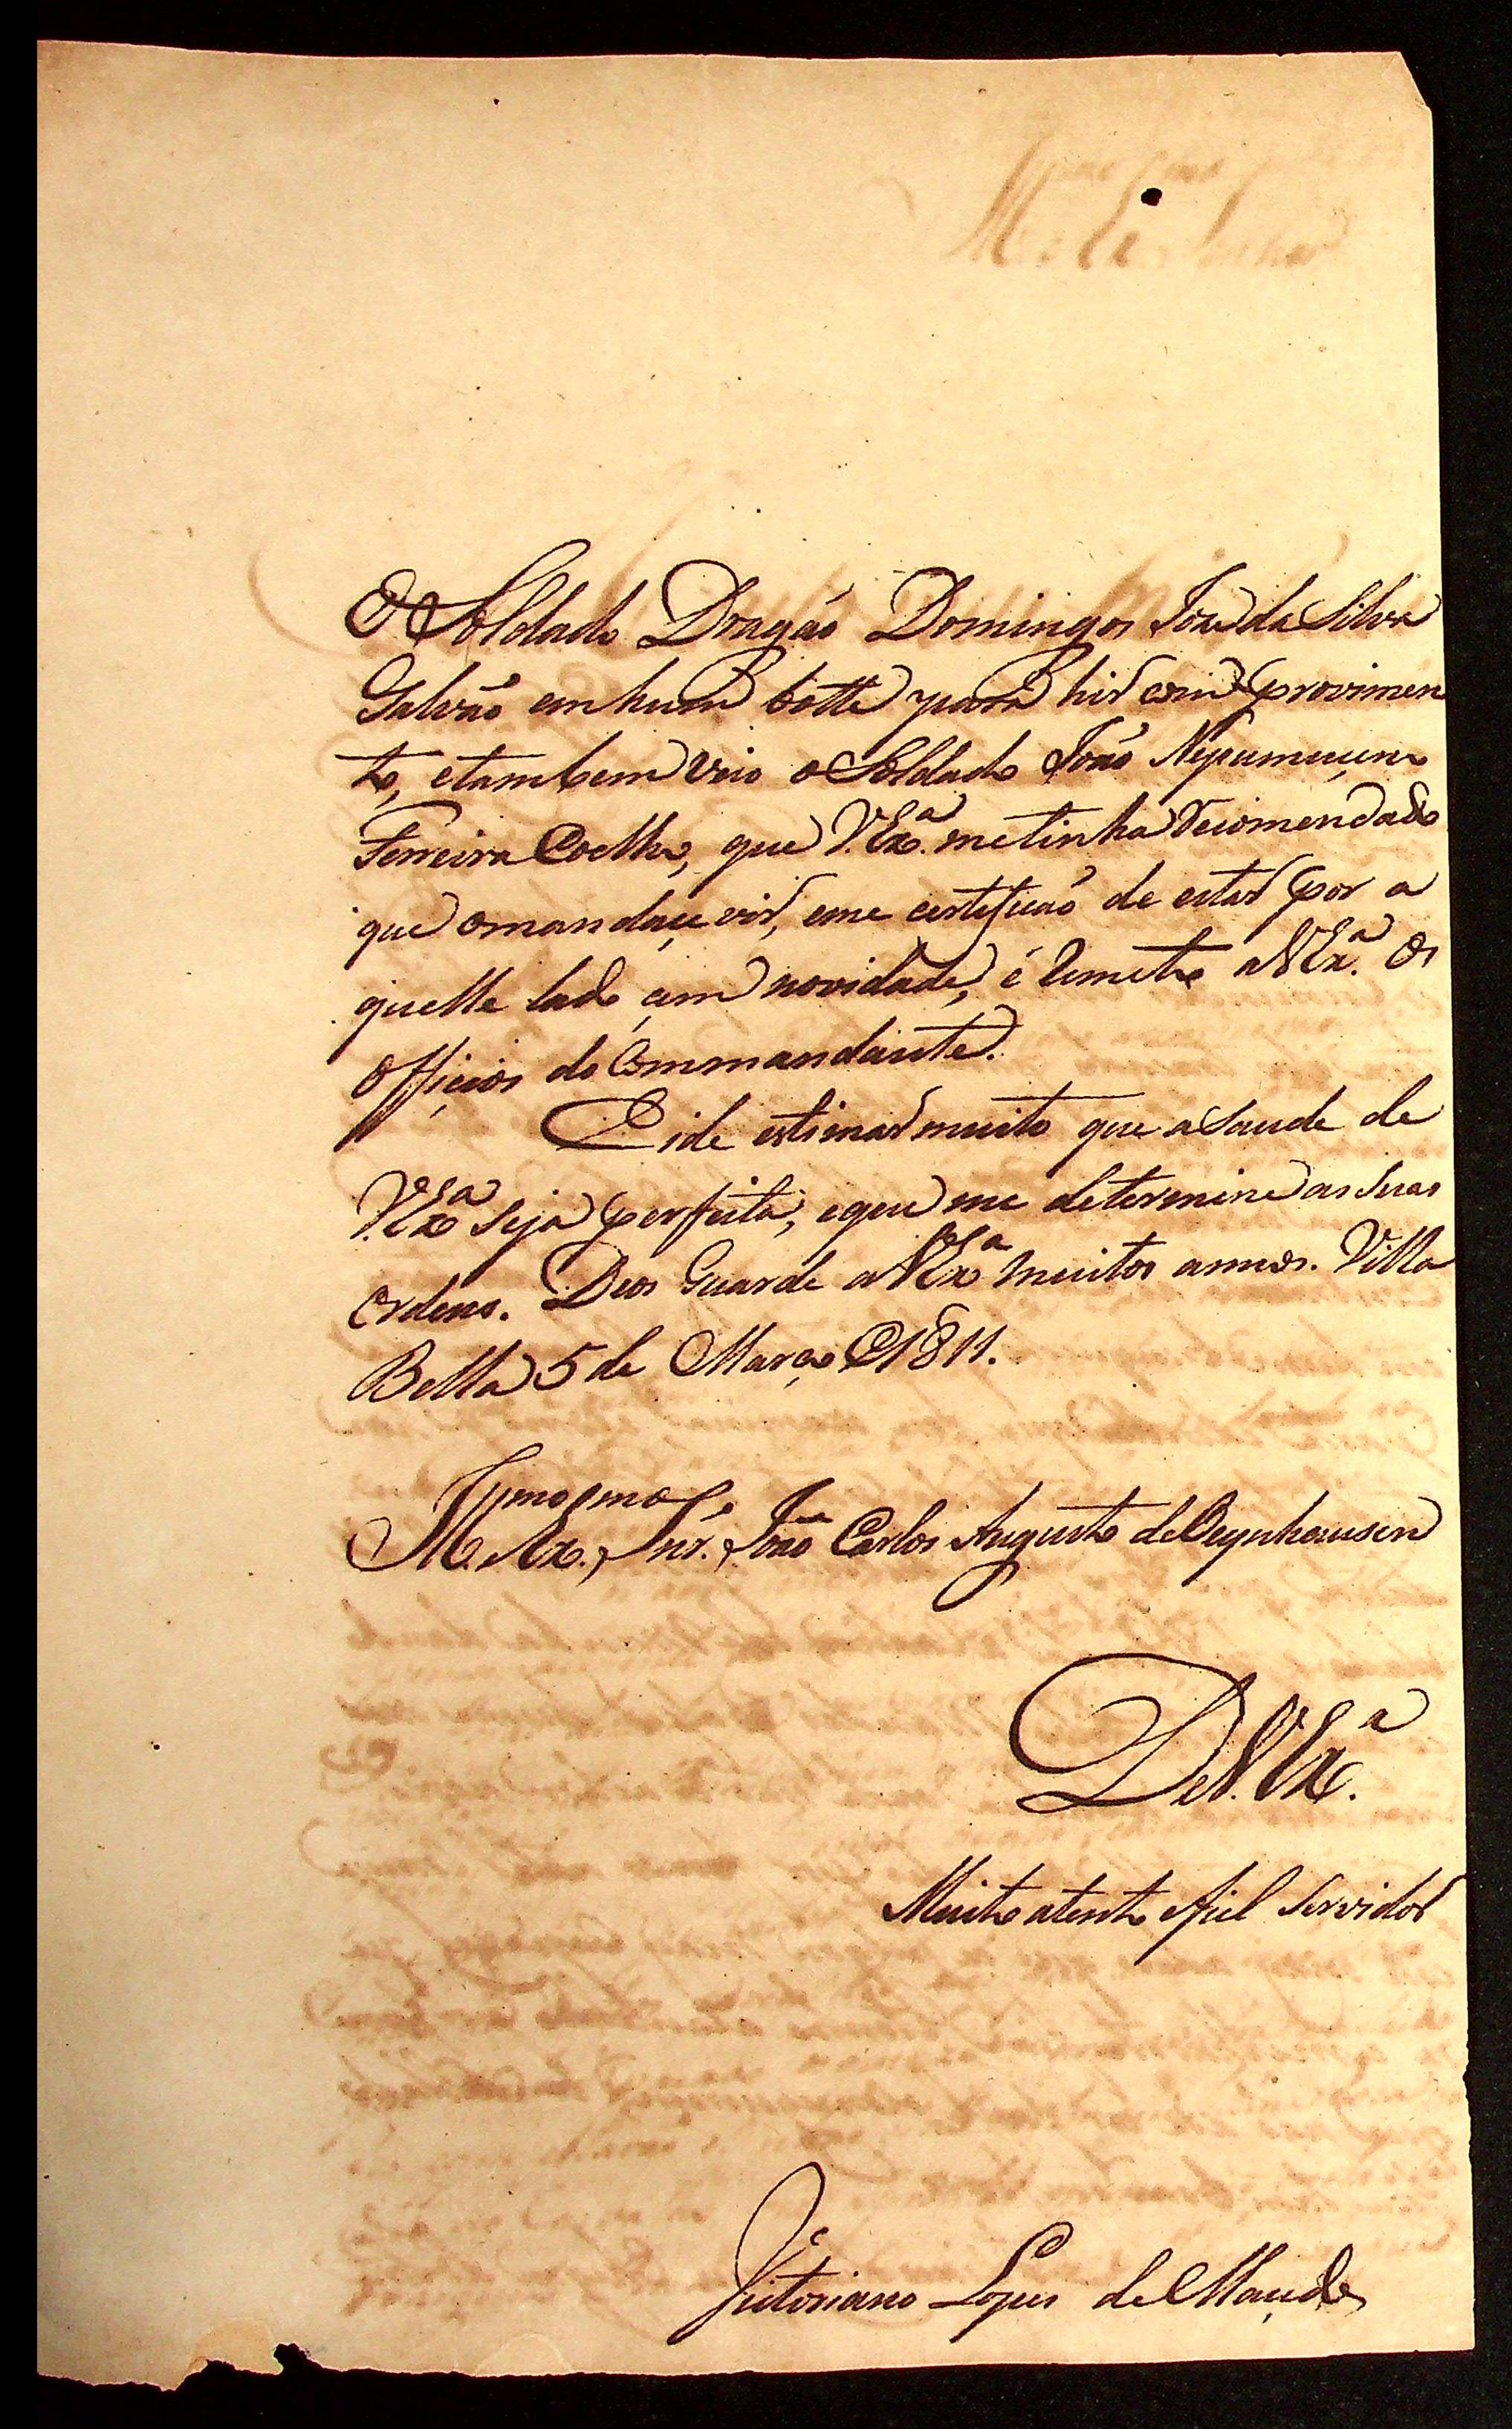 O Soldado Dragaõ Domingos Joze da Silva
Galvaõ em hum botte para hir com provimen
to, etambem veio o Soldado Joaõ Nepumuçeno
Ferreira Coelho, que V. Exª. metinha recomendado
que omandaçe vir, eme certeficaõ de estar por a
quelle lado çem novidade, é Remeto aV Exª. Os
Offiçios do Commandante.
Eide estimar muito que a Saude de
V. Exª seja perfeita, eque me determine as Suas
Ordens. Deos Guarde aV Exª muitos annos. Villa
Bella 5 de Março 1811.
Illmo. e Exmo. Snr. Joaõ Carlos Augusto de Oeynhausen
De V. Exª.
Muito atento efiel Servidor
Victoriano Lopes de